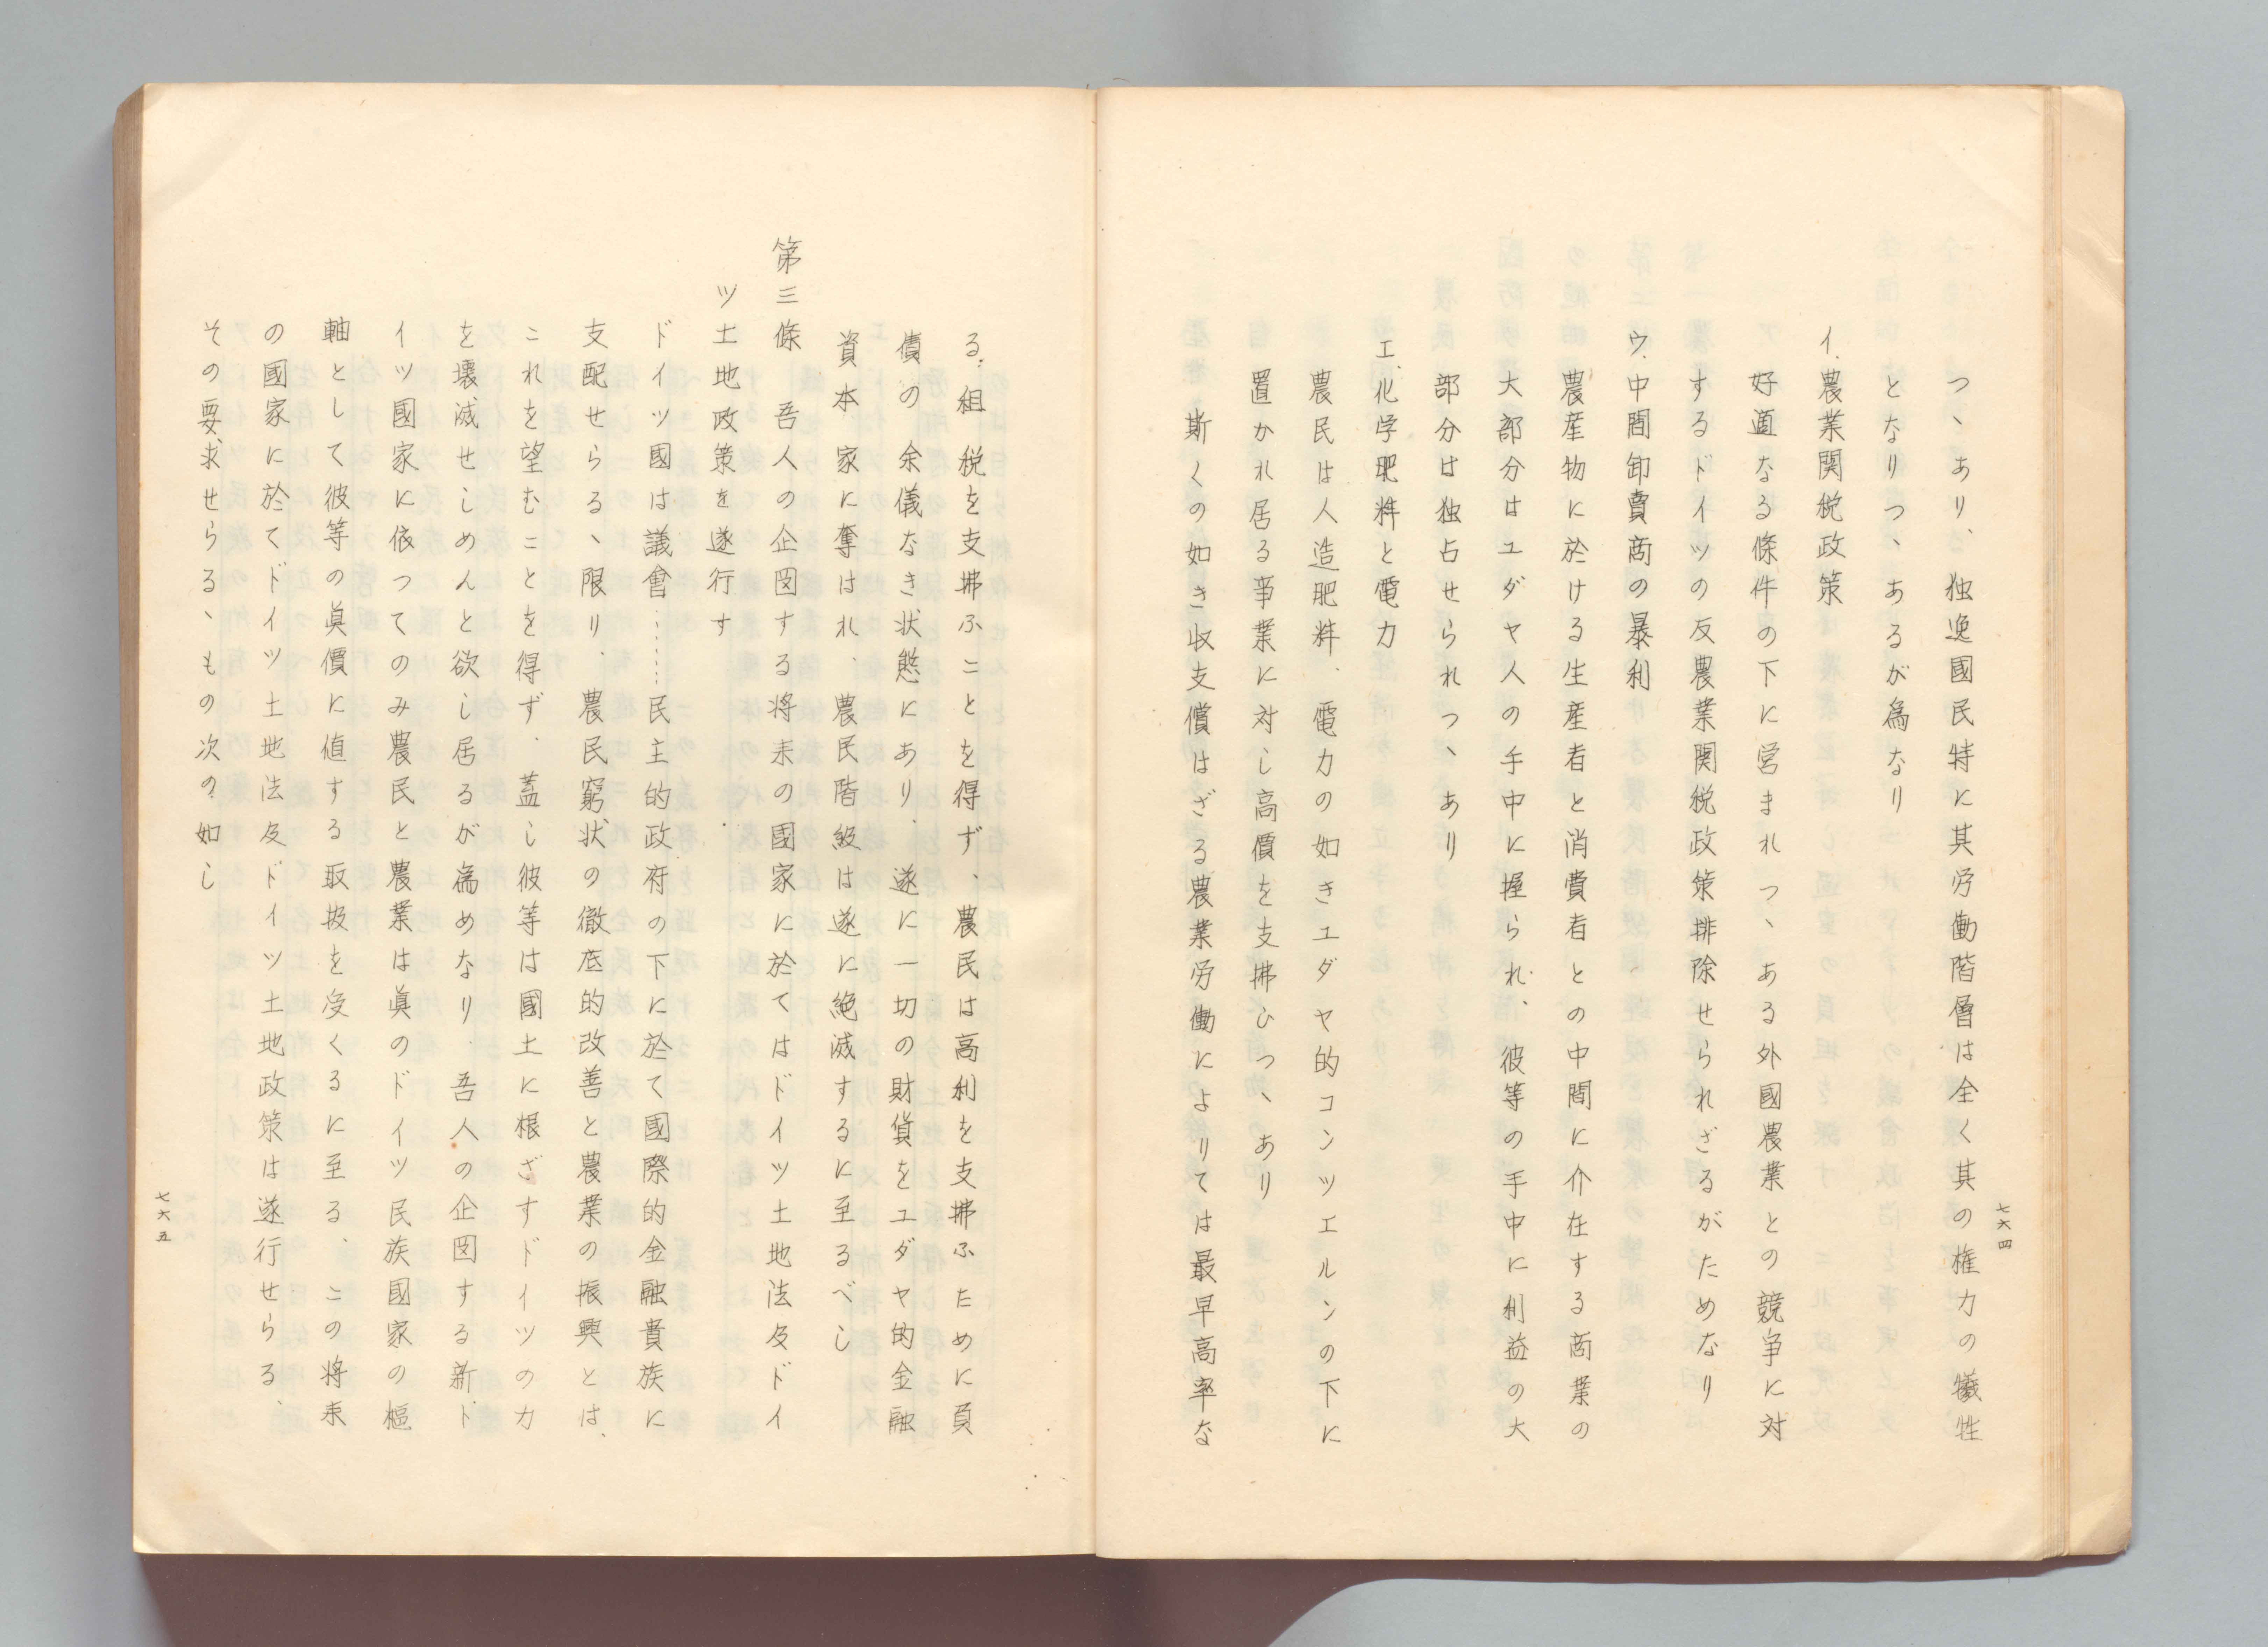 七六四
つゝあり、独逸國民特に其労働階層は全く其の権力の犠牲
となりつゝあるが為なり
イ、農業関税政策
好適なる條件の下に営まれつゝある外國農業との競争に対
するドイツの反農業関税政策排除せられざるがためなり
ウ、中間卸賣商の暴利
農産物に於ける生産者と消費者との中間に介在する商業の
大部分はユダヤ人の手中に握られ、彼等の手中に利益の大
部分は独占せられつゝあり
エ、化学肥料と電力
農民は人造肥料、電力の如きユダヤ的コンツエルンの下に
置かれ居る事業に対し高價を支拂ひつゝあり
斯くの如き収支償はざる農業労働によりては最早高率な
る租税を支拂ふことを得ず、農民は高利を支拂ふために負
債の余儀なき状態にあり、遂に一切の財貨をユダヤ的金融
資本家に奪はれ、農民階級は遂に絶滅するに至るべし
第三條 吾人の企図する将来の國家に於てはドイツ土地法及ドイ
ツ土地政策を遂行す
ドイツ國は議會……民主的政府の下に於て國際的金融貴族に
支配せらるゝ限り、農民窮状の徹底的改善と農業の振興とは、
これを望むことを得ず、蓋し彼等は國土に根ざすドイツの力
を壊滅せしめんと欲し居るが為めなり、吾人の企図する新ド
イツ國家に依つてのみ農民と農業は眞のドイツ民族國家の樞
軸として彼等の眞價に値する取扱を受くるに至る、この将来
の國家に於てドイツ土地法及ドイツ土地政策は遂行せらる、
その要求せらるゝもの次の如し
七六五